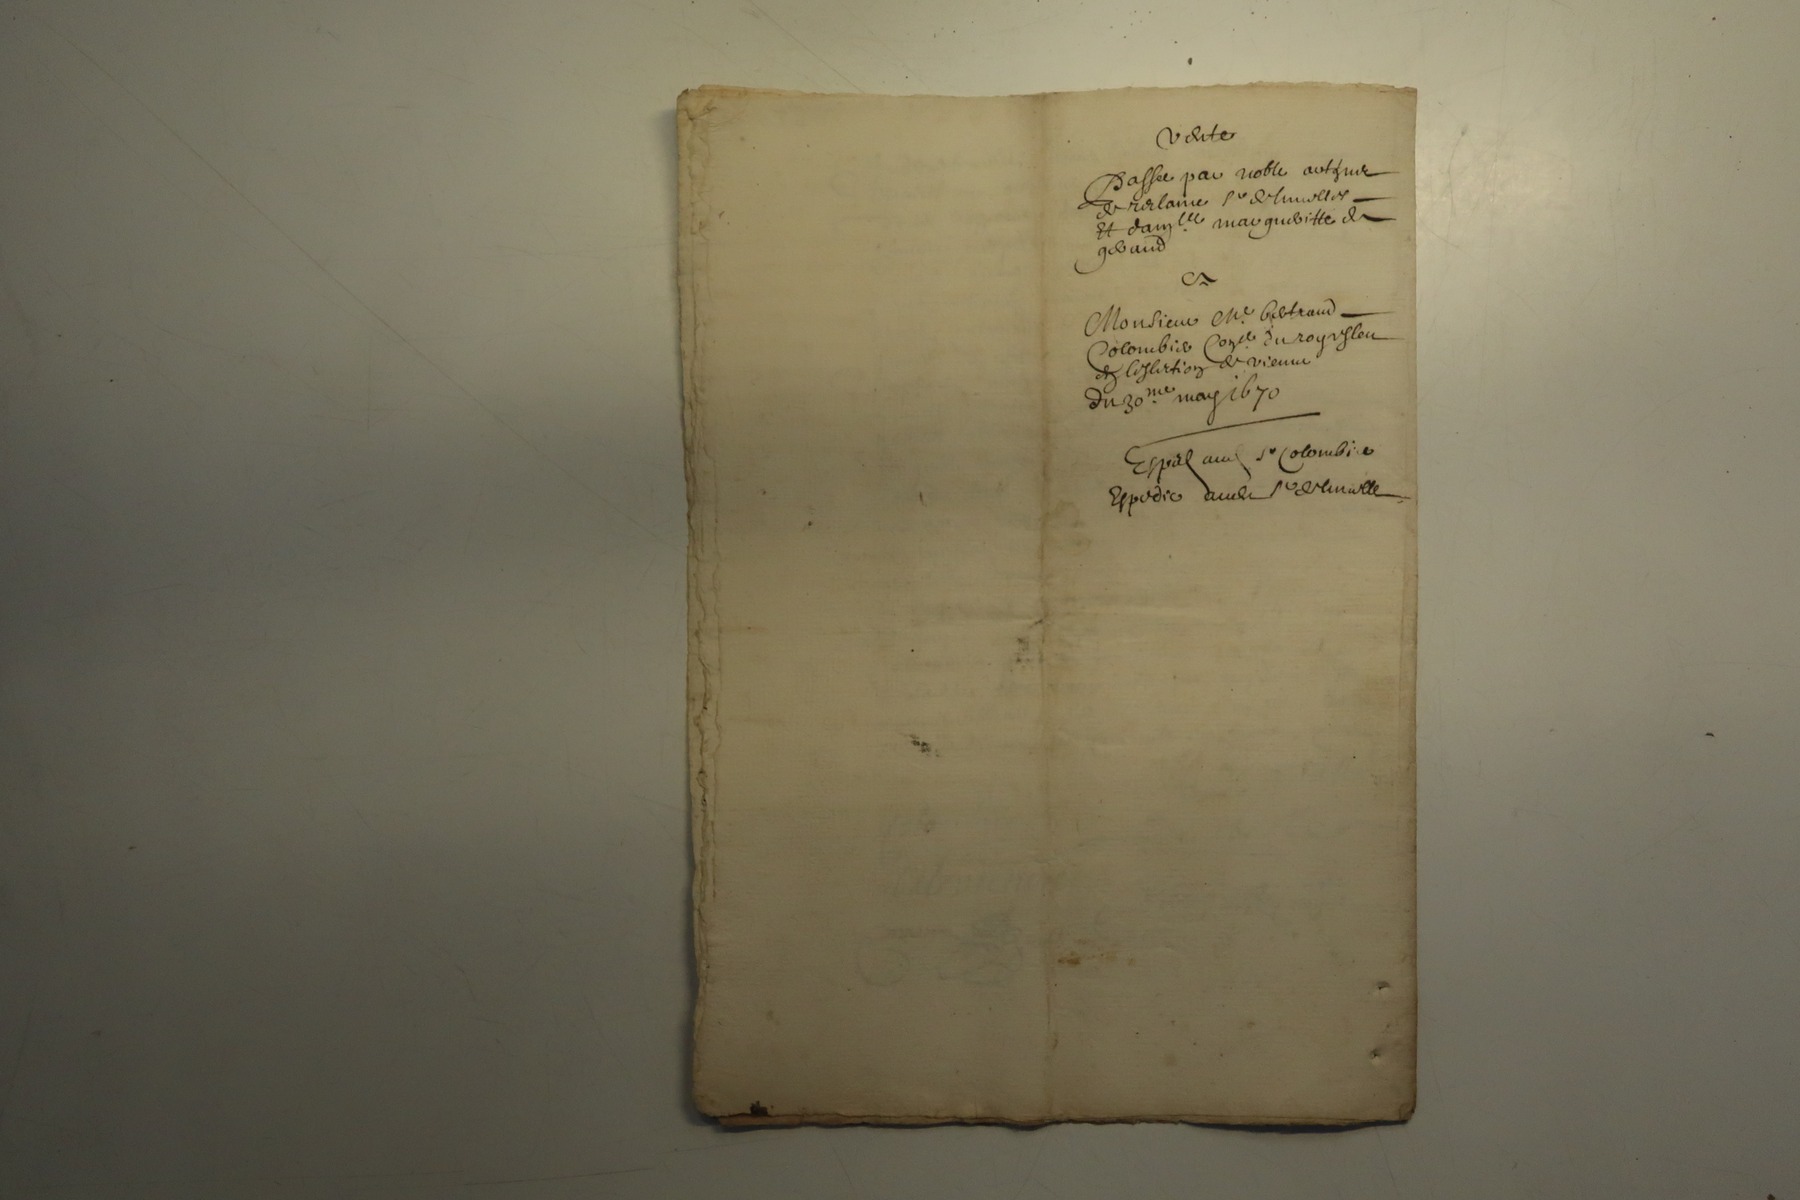 Vente
Passee par noble anthoine
de
Et dam.lle margueritte de
guerand
A
Monsieur Me. bertrand
Colombier Con.er du roy esleu
en leslection de vienne
du 30.me may 1670
Expedié aud. Sr Colombier
Expedié aud. Sr de